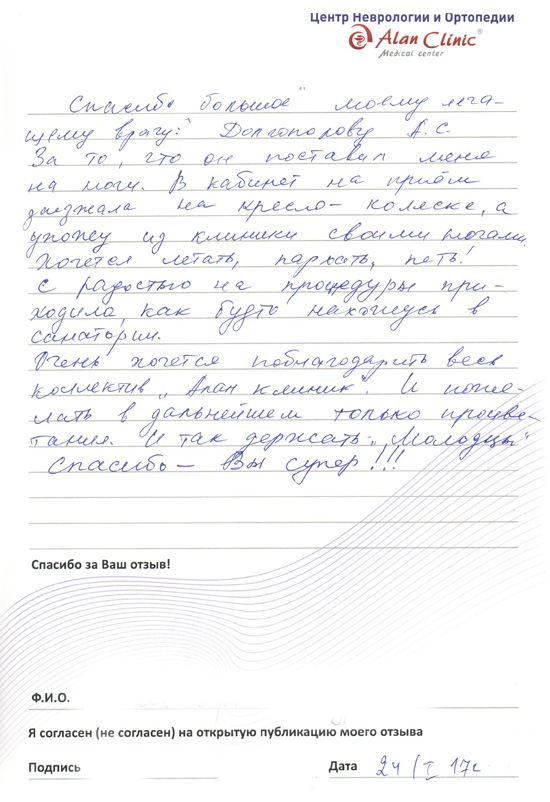 Центр Неврологии и Ортопедии
Alan Clinic®
Medical center
Спасибо большое моему леча-
щему врачу: Долгополову А.С.
За то, что он поставил меня
на ноги. В кабинет на приём
заезжала на кресло- коляске, а
ухожу из клиники своими ногами.
Хочется летать, пархать, петь!
С радостью на процедуры при-
ходила, как будто нахожусь в
санатории.
Очень хочется поблагодарить весь
коллектив „Алан клиник". И поже-
лать в дальнейшем только процве-
тания. И так держать „Молодцы"
Спасибо – Вы супер!!!
Спасибо за Ваш отзыв!
Ф.И.О.
Я согласен (не согласен) на открытую публикацию моего отзыва
Подпись
Дата 24/I 17г